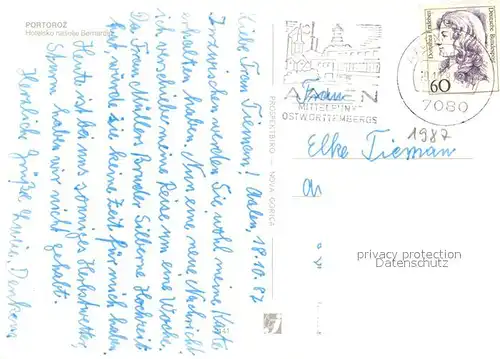 PORTOROŽ
Hotelsko naselje Bernardin
Liebe Frau Tieman! Aalen, 18.10.87
Inzwischen werden Sie wohl meine Karte
erhalten haben. Nun eine neue Nachricht
ich verschiebe meine Reise um eine Woche.
Da Frau Müllers Bruder Silberne Hochzeit
hat, würde sie keine Zeit für mich haben.
Heute ist bei uns sonniges Herbstwetter,
Sturm haben wir nicht gehabt.
Herzliche Grüße
PROSPEKTBIRO — NOVA GORICA
AALEN
MITTELPUNKT
OSTWÜRTTEMBERGS
7080
Dorothea Erxleben
Deutsche Bundespost
60
1987
Frau
Elke Tieman
privacy protection
Datenschutz